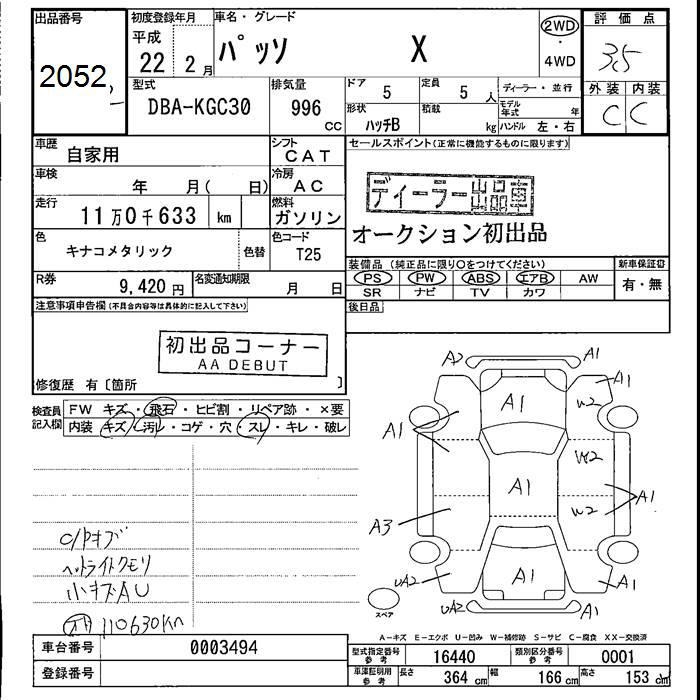 出品番号
2052
初度登録年月
平成
22 2月
車名・グレード
パッソ X
2WD
・
4WD
評価点
3.5
外装 内装
C C
型式
DBA-KGC30
排気量
996
cc
ドア
5
定員
5 人
形状
ハッチB
積載
kg
ディーラー・並行
モデル年式 年
ハンドル 左・右
車歴
自家用
シフト
CAT
車検
年 月( 日)
冷房
AC
走行
11万0千633 km
燃料
ガソリン
色
キナコメタリック
色替
色コード
T25
R券
9,420円
名変通知期限
月 日
セールスポイント(正常に機能するものに限ります)
ディーラー出品車
オークション初出品
装備品(純正品に限り○をつけてください)
PS PW ABS エアB AW
SR ナビ TV カワ
新車保証書
有・無
後日品
注意事項申告欄(不具合内容等は具体的に記入して下さい)
初出品コーナー
AA DEBUT
修復歴 有〔箇所 〕
検査員記入欄
FW キズ・飛石・ヒビ割・リペア跡・×要
内装 キズ・汚レ・コゲ・穴・スレ・キレ・破レ
C/Pキズ
ヘットライトクモリ
小キズAU
110630Km
A2 A1
A1 A1
W2
A1
W2
A1
W2 A1
A3
UA2 A1 A1
UA2 A1
スペア
A−キズ E−エクボ U−凹み W−補修跡 S−サビ C−腐食 XX−交換済
車台番号
0003494
登録番号
型式指定番号
参考
16440
類別区分番号
参考
0001
車庫証明用
参考
長さ
364 cm
幅
166 cm
高さ
153 cm